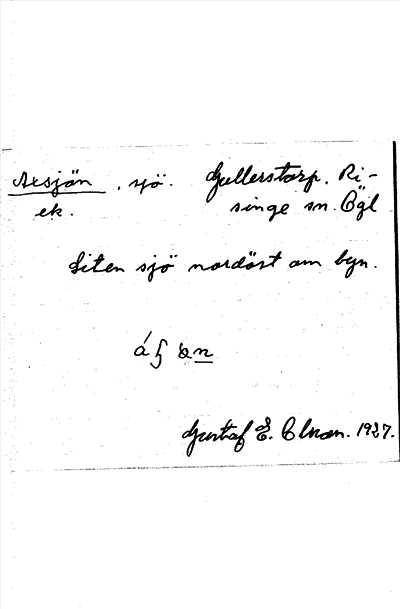 Axsjön, sjö. Gullerstorp. Ri-
ek. singe sn. Ögl
Liten sjö nordöst om byn.
Gustaf E. Olsson. 1927.